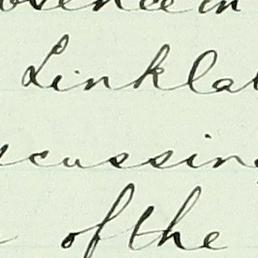 osence in
Linklat
scussing
of the